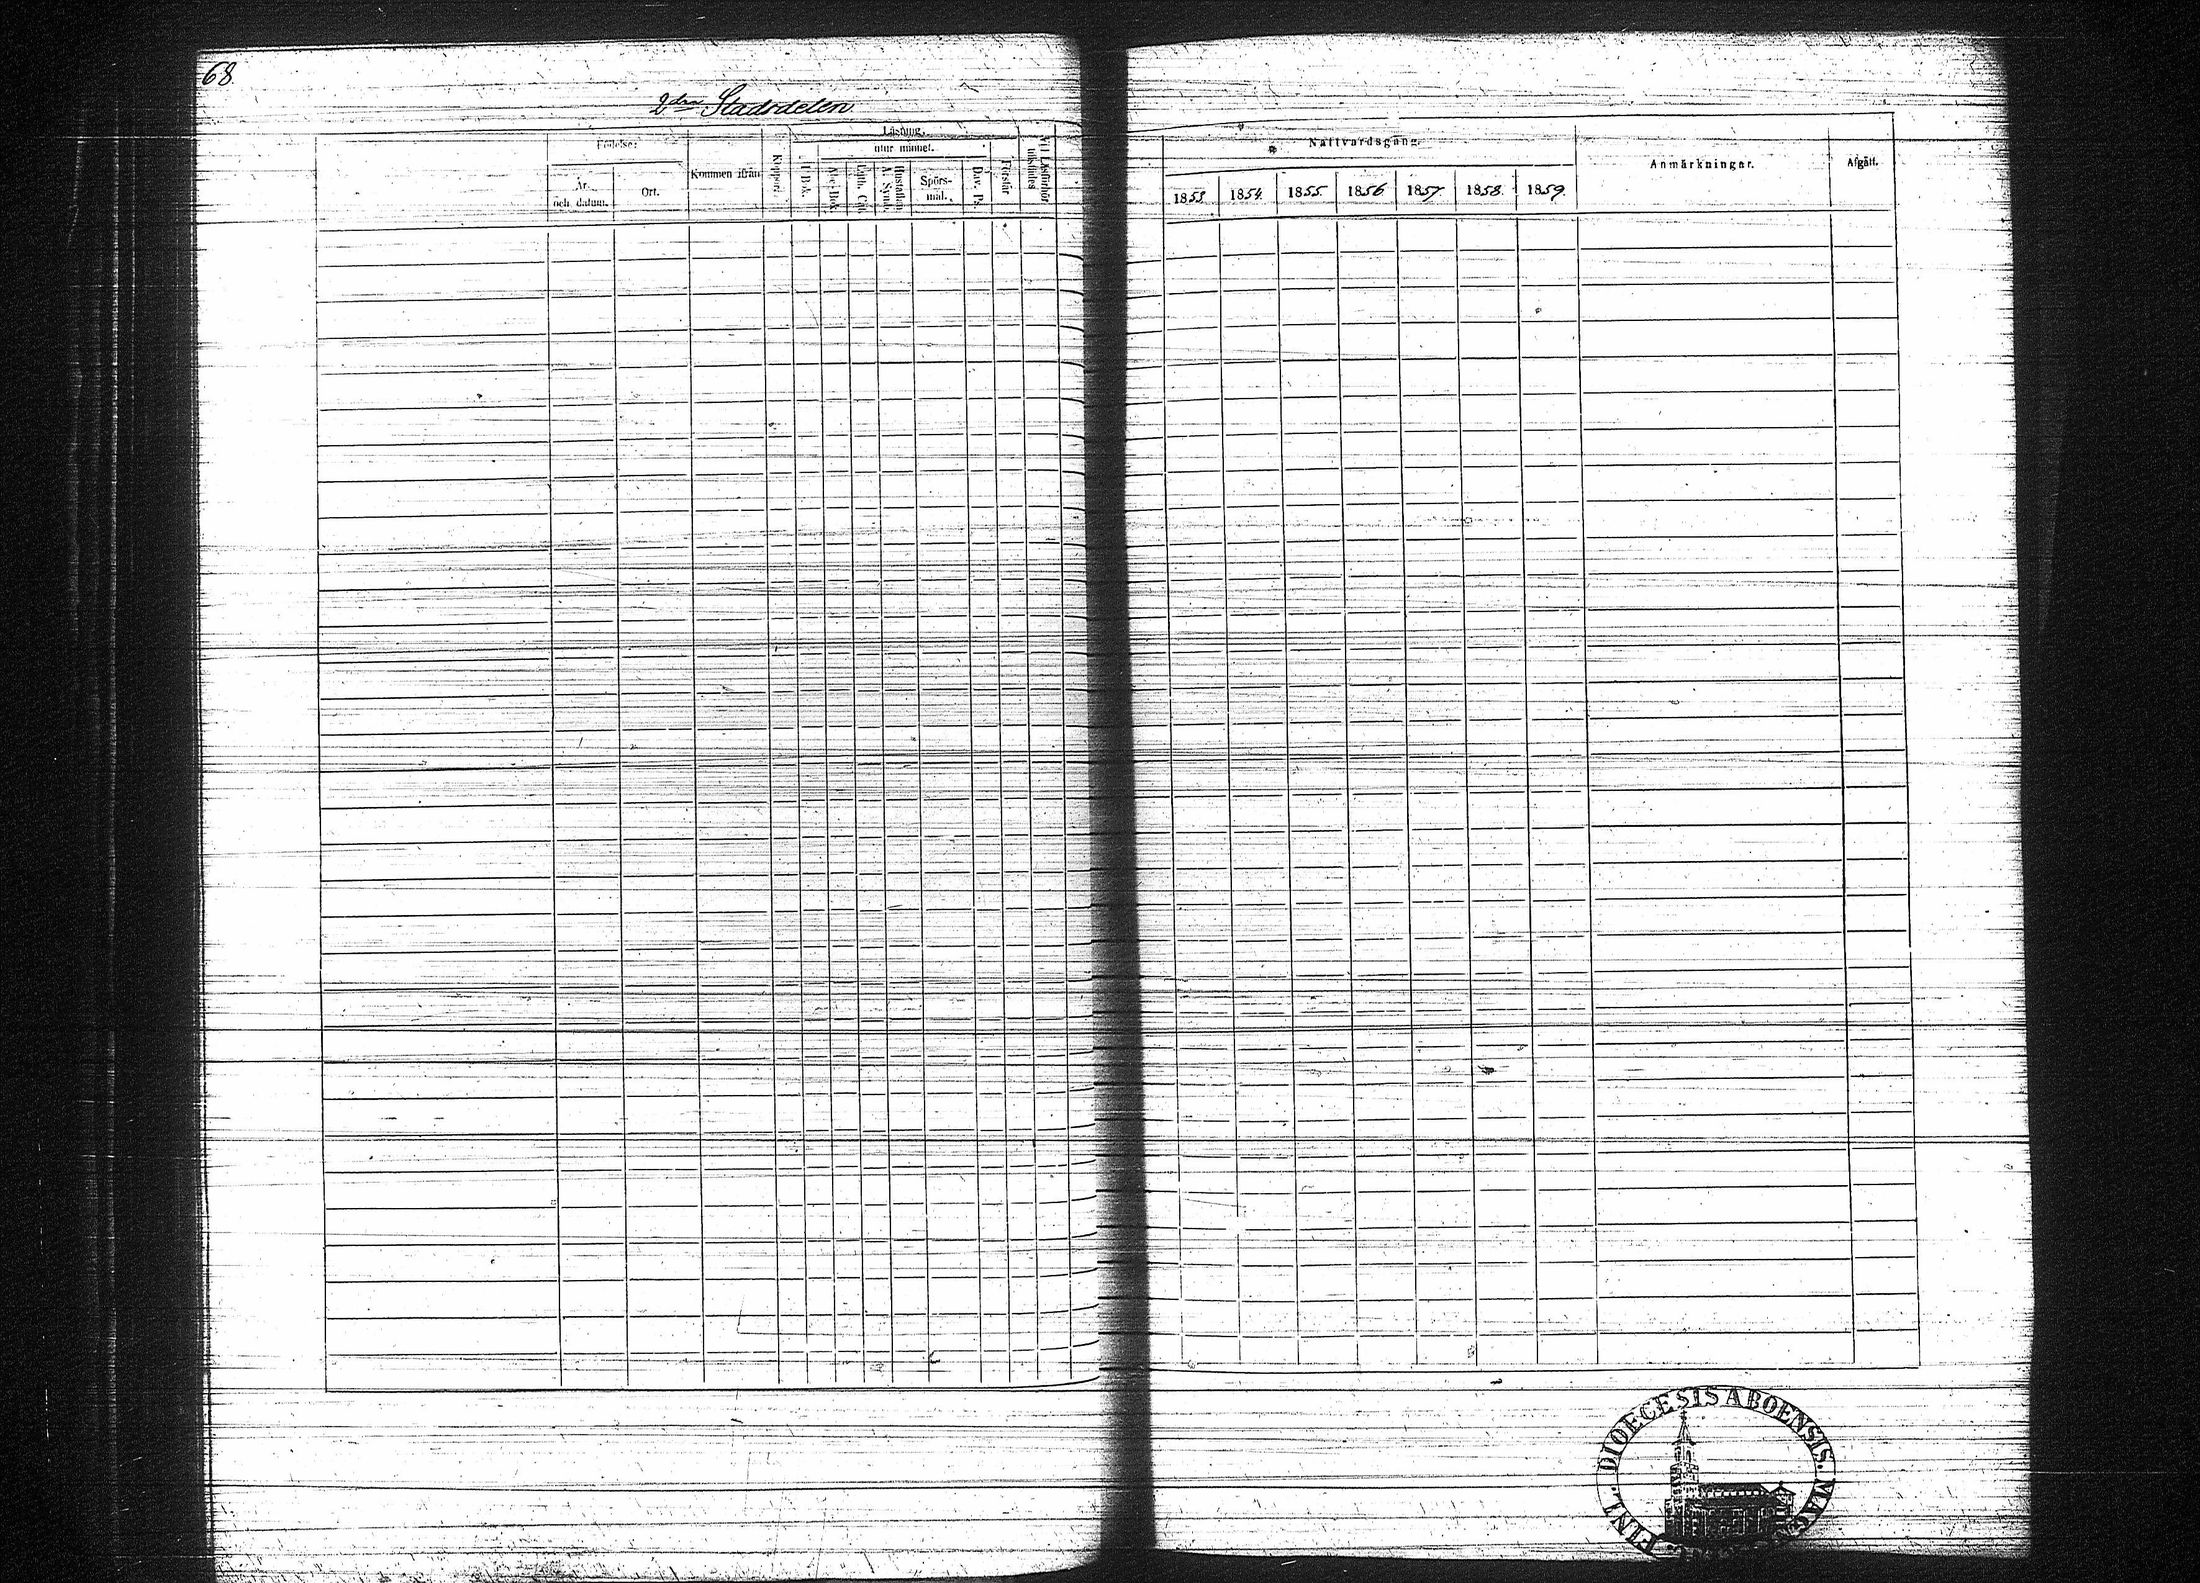 68.
2dra Stadsdelen.
Födelse:
År och datum.
Ort.
Kommen ifrån
Koppor:
Läsning.
utur minnet.
I Bok.
A-b-bok
Luth. Cat.
Hustaflan A. Symb.
Spörs-mål.
Dav. Ps.
Förstår
Vid Läsförhör tillstädes
Nattvardsgång.
1853. 1854. 1855. 1856 1857. 1858. 1859.
Anmärkningar.
Afgått.
FINL. DIOECESIS ABOENSIS. MAG